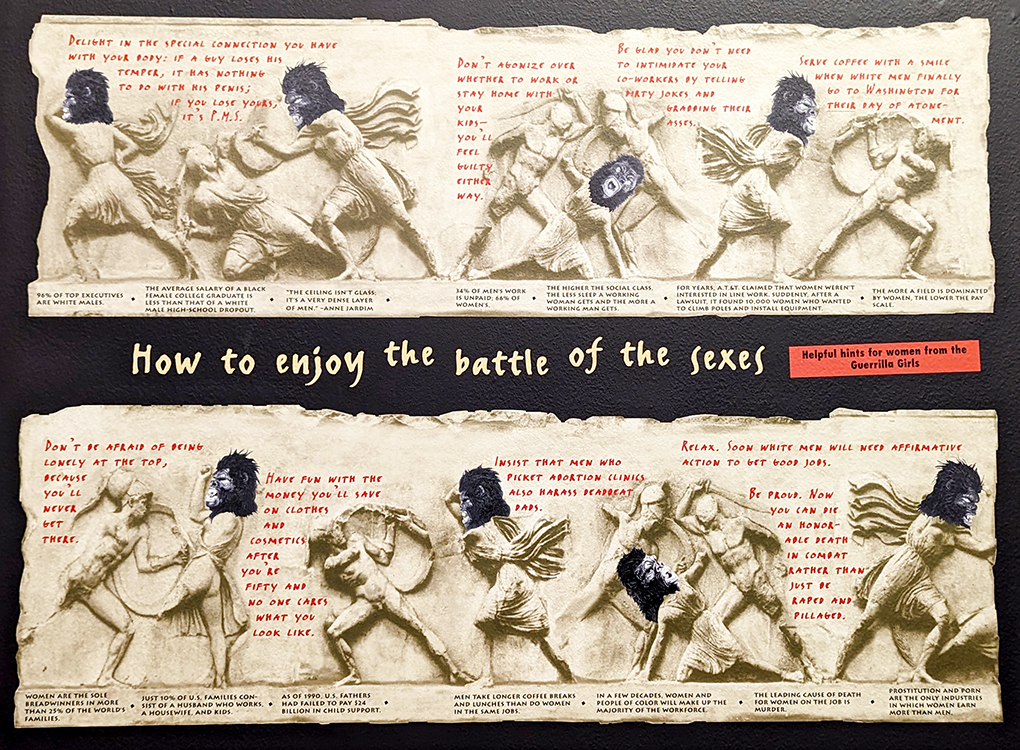 DELIGHT IN THE SPECIAL CONNECTION YOU HAVE
WITH YOUR BODY: IF A GUY LOSES HIS
TEMPER, IT HAS NOTHING
TO DO WITH HIS PENIS;
IF YOU LOSE YOURS,
IT'S P.M.S.
DON'T AGONIZE OVER
WHETHER TO WORK OR
STAY HOME WITH
YOUR
KIDS—
YOU'LL
FEEL
GUILTY
EITHER
WAY.
BE GLAD YOU DON'T NEED
TO INTIMIDATE YOUR
CO-WORKERS BY TELLING
DIRTY JOKES AND
GRABBING THEIR
ASSES.
SERVE COFFEE WITH A SMILE
WHEN WHITE MEN FINALLY
GO TO WASHINGTON FOR
THEIR DAY OF ATONE-
MENT.
96% OF TOP EXECUTIVES
ARE WHITE MALES.
THE AVERAGE SALARY OF A BLACK
FEMALE COLLEGE GRADUATE IS
LESS THAN THAT OF A WHITE
MALE HIGH-SCHOOL DROPOUT.
"THE CEILING ISN'T GLASS;
IT'S A VERY DENSE LAYER
OF MEN." –ANNE JARDIM
34% OF MEN'S WORK
IS UNPAID; 66% OF
WOMEN'S.
THE HIGHER THE SOCIAL CLASS,
THE LESS SLEEP A WORKING
WOMAN GETS AND THE MORE A
WORKING MAN GETS.
FOR YEARS, A.T.&T. CLAIMED THAT WOMEN WEREN'T
INTERESTED IN LINE WORK. SUDDENLY, AFTER A
LAWSUIT, IT FOUND 10,000 WOMEN WHO WANTED
TO CLIMB POLES AND INSTALL EQUIPMENT.
THE MORE A FIELD IS DOMINATED
BY WOMEN, THE LOWER THE PAY
SCALE.
How to enjoy the battle of the sexes
Helpful hints for women from the
Guerrilla Girls
DON'T BE AFRAID OF BEING
LONELY AT THE TOP,
BECAUSE
YOU'LL
NEVER
GET
THERE.
HAVE FUN WITH THE
MONEY YOU'LL SAVE
ON CLOTHES
AND
COSMETICS
AFTER
YOU'RE
FIFTY AND
NO ONE CARES
WHAT YOU
LOOK LIKE.
INSIST THAT MEN WHO
PICKET ABORTION CLINICS
ALSO HARASS DEADBEAT
DADS.
RELAX. SOON WHITE MEN WILL NEED AFFIRMATIVE
ACTION TO GET GOOD JOBS.
BE PROUD. NOW
YOU CAN DIE
AN HONOR-
ABLE DEATH
IN COMBAT
RATHER THAN
JUST BE
RAPED AND
PILLAGED.
WOMEN ARE THE SOLE
BREADWINNERS IN MORE
THAN 25% OF THE WORLD'S
FAMILIES.
JUST 10% OF U.S. FAMILIES CON-
SIST OF A HUSBAND WHO WORKS,
A HOUSEWIFE, AND KIDS.
AS OF 1990, U.S. FATHERS
HAD FAILED TO PAY $24
BILLION IN CHILD SUPPORT.
MEN TAKE LONGER COFFEE BREAKS
AND LUNCHES THAN DO WOMEN
IN THE SAME JOBS.
IN A FEW DECADES, WOMEN AND
PEOPLE OF COLOR WILL MAKE UP THE
MAJORITY OF THE WORKFORCE.
THE LEADING CAUSE OF DEATH
FOR WOMEN ON THE JOB IS
MURDER.
PROSTITUTION AND PORN
ARE THE ONLY INDUSTRIES
IN WHICH WOMEN EARN
MORE THAN MEN.